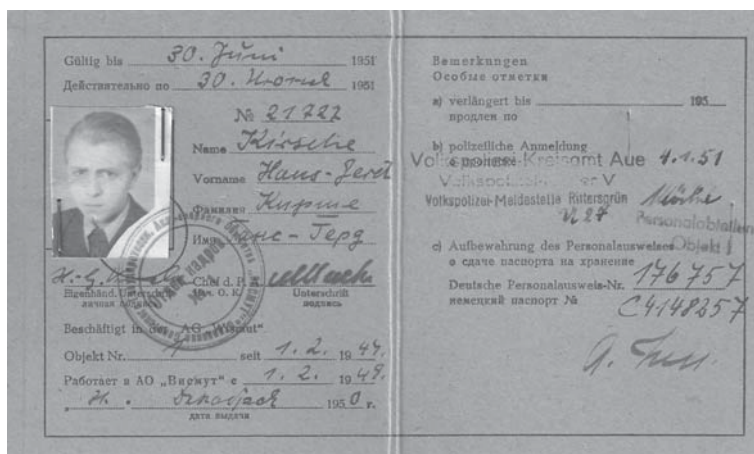 Gültig bis 30. Juni 1951
Действительно по 30. Июня 1951
№ 21727
Name Kirsche
Vorname Hans-Gerd
Фамилия Кирше
Имя Ганс-Герд
H.-G. Chef d. P.
Eigenhänd. Unterschrift Нач. О. К. Unterschrift
личная подпись подпись
Beschäftigt in der AG „Wismut“
Objekt Nr. seit 1. 2. 1949.
Работает в АО „Висмут“ с 1. 2. 1949.
1950 г.
дата выдачи
Bemerkungen
Особые отметки
a) verlängert bis 195
продлен по
b) polizeiliche Anmeldung
о прописке
Kreisamt Aue 4.1.51
Volkspolizei-Meldestelle Rittersgrün
Objekt
c) Aufbewahrung des Personalausweises
о сдаче паспорта на хранение
176757
Deutsche Personalausweis-Nr.
немецкий паспорт № C4148257